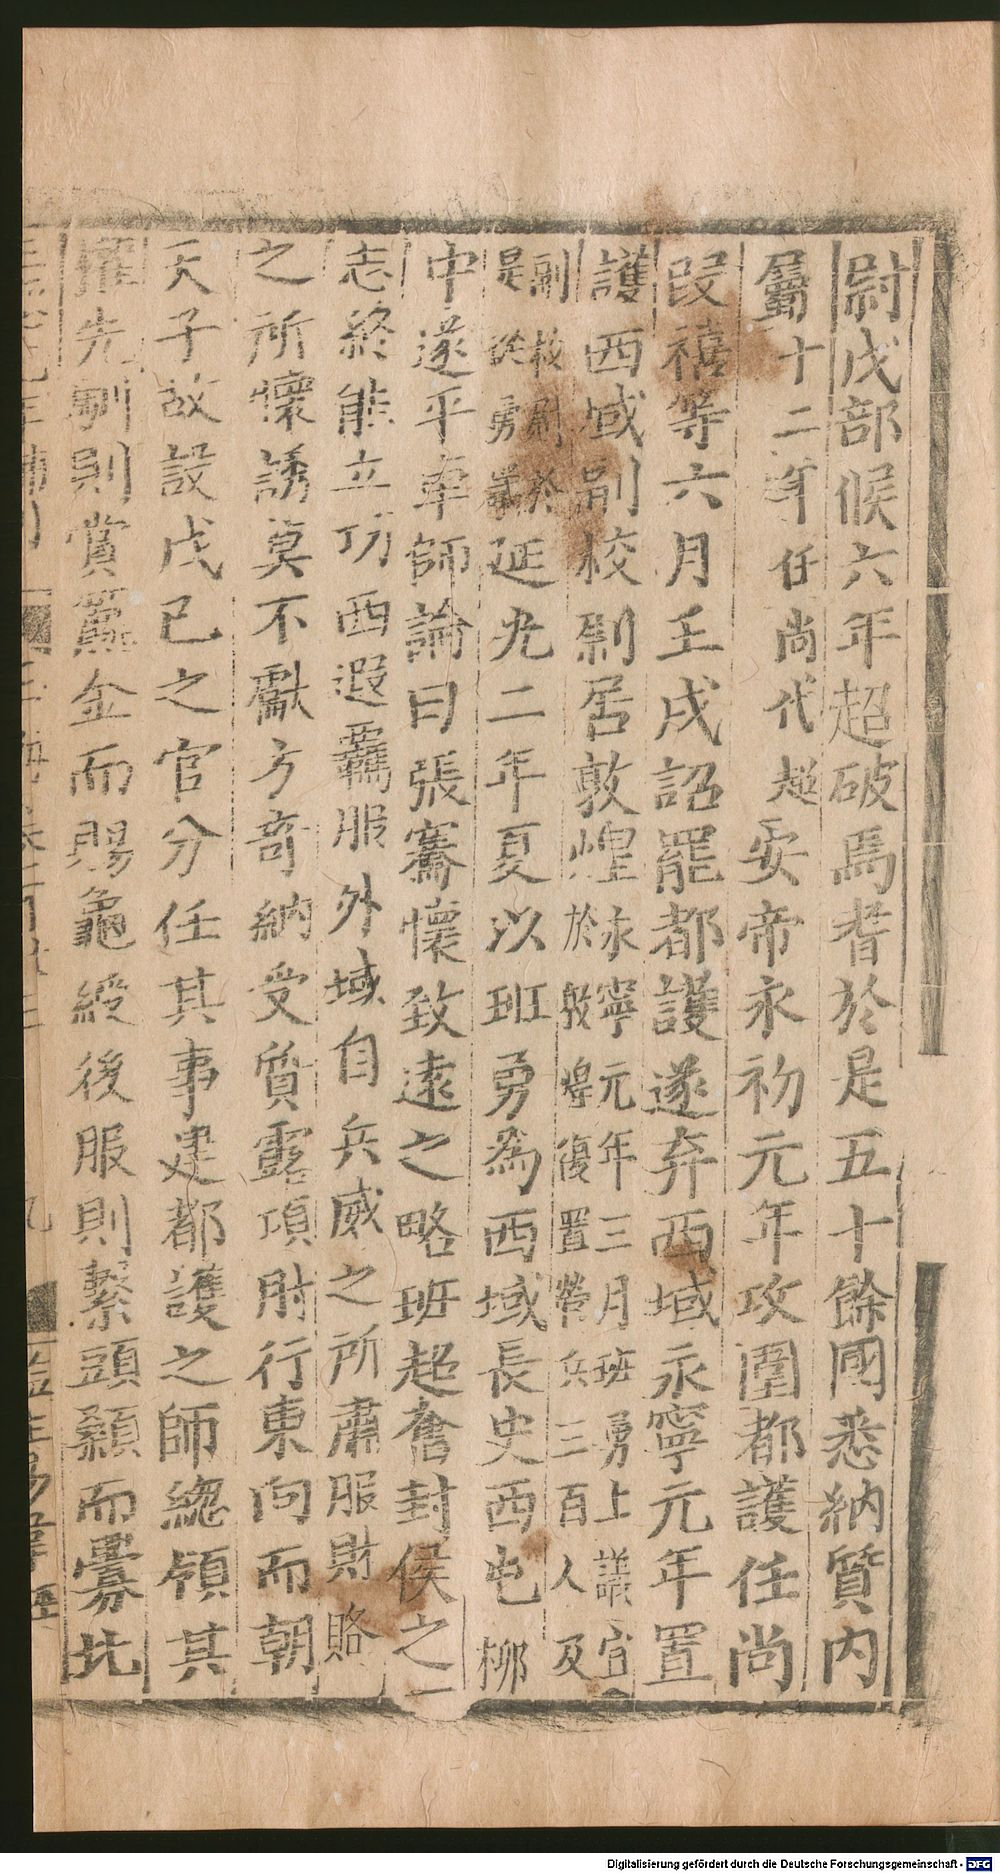 尉戊部候六年超破焉耆於是五十餘國悉納質內
屬十二年任尚代超安帝永初元年攻圍都護任尚
段禧等六月壬戌詔罷都護遂弃西域永寧元年置
護西域副校尉居敦煌永寧元年三月班勇上議宜
於敦煌復置營兵三百人及
副校尉於
是從勇議延光二年夏以班勇為西域長史西屯柳
中遂平車師論曰張騫懷致遠之略班超奮封侯之
志終能立功西遐羈服外域自兵威之所肅服財賂
之所懷誘莫不獻方奇納受質露頂肘行東向而朝
天子故設戊己之官分任其事建都護之師總領其
權先馴則賞籯金而賜龜綬後服則繫頭顙而釁北
Digitalisierung gefördert durch die Deutsche Forschungsgemeinschaft - DFG